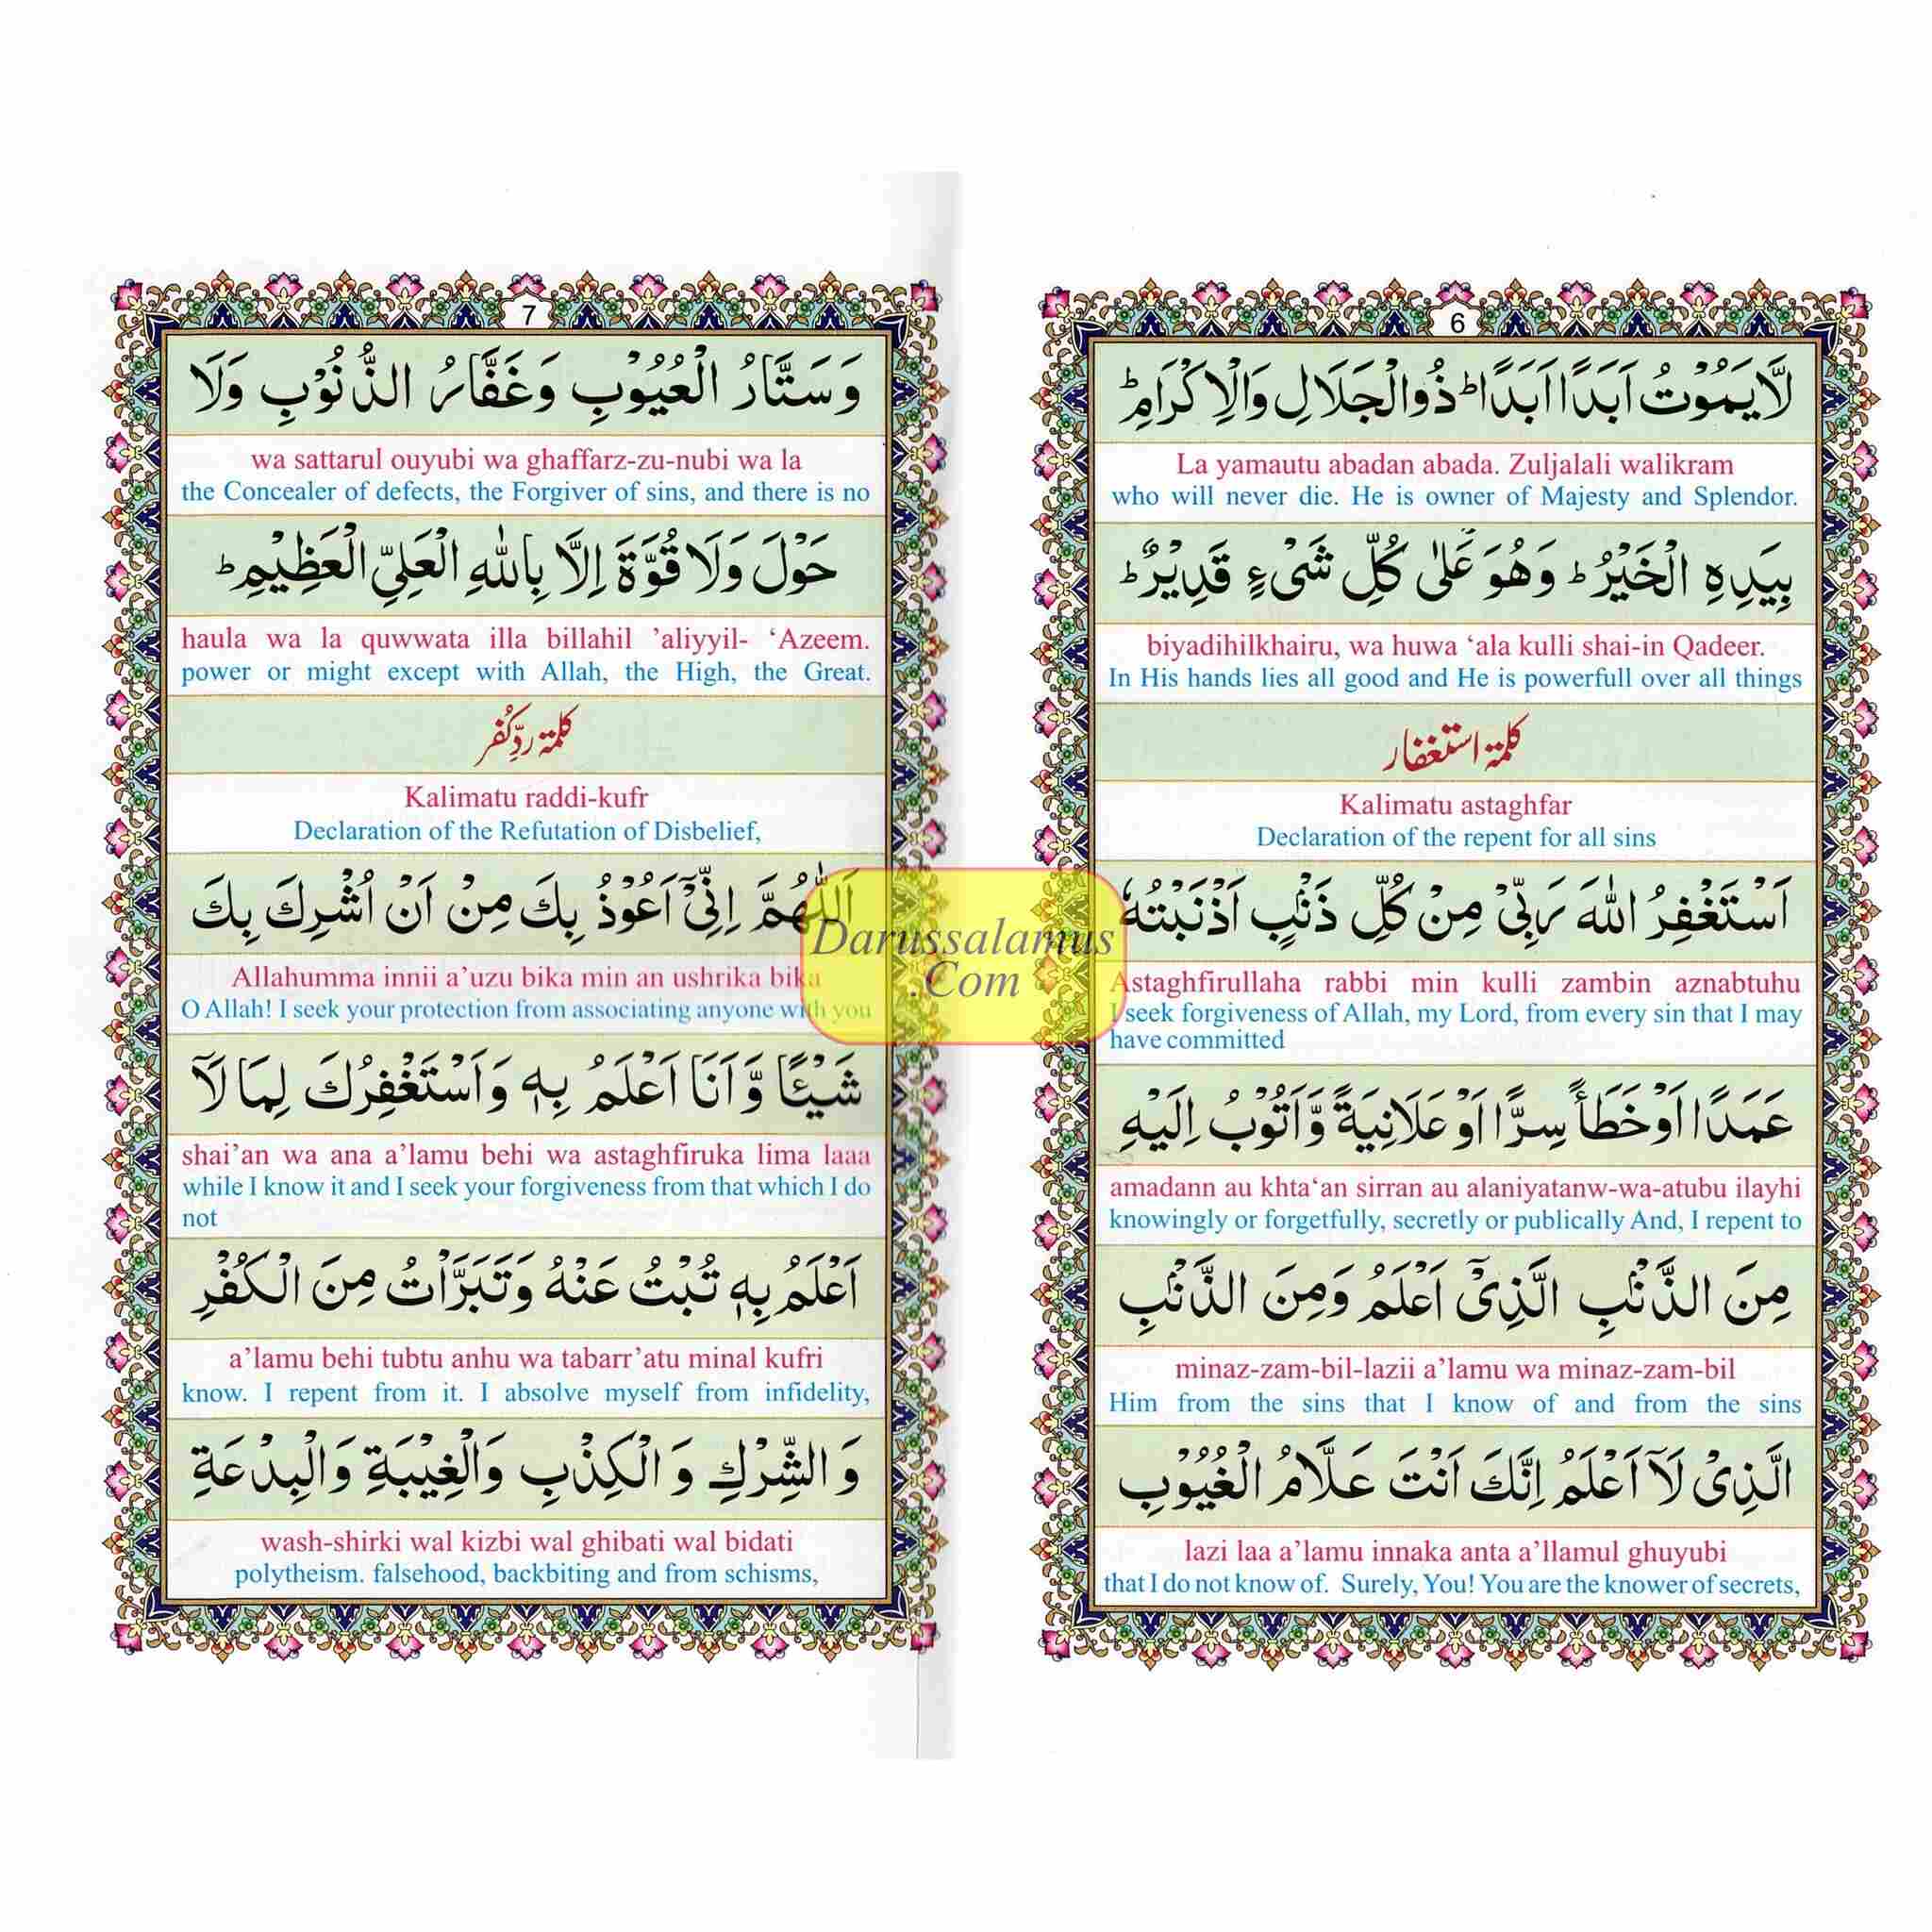 6
لَّا يَمُوْتُ اَبَدًا اَبَدًا ؕ ذُو الْجَلَالِ وَالْاِكْرَامِ ؕ
La yamautu abadan abada. Zuljalali walikram
who will never die. He is owner of Majesty and Splendor.
بِيَدِهِ الْخَيْرُ ؕ وَهُوَ عَلٰى كُلِّ شَىْءٍ قَدِيْرٌ ؕ
biyadihilkhairu, wa huwa ‘ala kulli shai-in Qadeer.
In His hands lies all good and He is powerfull over all things
كلمۃ استغفار
Kalimatu astaghfar
Declaration of the repent for all sins
اَسْتَغْفِرُ اللّٰهَ رَبِّىْ مِنْ كُلِّ ذَنْۢبٍ اَذْنَبْتُهٗ
Astaghfirullaha rabbi min kulli zambin aznabtuhu
I seek forgiveness of Allah, my Lord, from every sin that I may
have committed
عَمَدًا اَوْ خَطَأً سِرًّا اَوْ عَلَانِيَةً وَّاَتُوْبُ اِلَيْهِ
amadann au khta‘an sirran au alaniyatanw-wa-atubu ilayhi
knowingly or forgetfully, secretly or publically And, I repent to
مِنَ الذَّنْۢبِ الَّذِىْٓ اَعْلَمُ وَمِنَ الذَّنْۢبِ
minaz-zam-bil-lazii a’lamu wa minaz-zam-bil
Him from the sins that I know of and from the sins
الَّذِىْ لَآ اَعْلَمُ اِنَّكَ اَنْتَ عَلَّامُ الْغُيُوْبِ
lazi laa a’lamu innaka anta a’llamul ghuyubi
that I do not know of. Surely, You! You are the knower of secrets,
7
وَسَتَّارُ الْعُيُوْبِ وَغَفَّارُ الذُّنُوْبِ وَلَا
wa sattarul ouyubi wa ghaffarz-zu-nubi wa la
the Concealer of defects, the Forgiver of sins, and there is no
حَوْلَ وَلَا قُوَّةَ اِلَّا بِاللّٰهِ الْعَلِىِّ الْعَظِيْمِ ؕ
haula wa la quwwata illa billahil ’aliyyil- ‘Azeem.
power or might except with Allah, the High, the Great.
كلمۃ ردِّ كُفر
Kalimatu raddi-kufr
Declaration of the Refutation of Disbelief,
اَللّٰهُمَّ اِنِّىْٓ اَعُوْذُ بِكَ مِنْ اَنْ اُشْرِكَ بِكَ
Allahumma innii a’uzu bika min an ushrika bika
O Allah! I seek your protection from associating anyone with you
شَيْـًٔا وَّاَنَا اَعْلَمُ بِهٖ وَاَسْتَغْفِرُكَ لِمَا لَآ
shai’an wa ana a’lamu behi wa astaghfiruka lima laaa
while I know it and I seek your forgiveness from that which I do
not
اَعْلَمُ بِهٖ تُبْتُ عَنْهُ وَتَبَرَّاْتُ مِنَ الْكُفْرِ
a’lamu behi tubtu anhu wa tabarr’atu minal kufri
know. I repent from it. I absolve myself from infidelity,
وَالشِّرْكِ وَالْكِذْبِ وَالْغِيْبَةِ وَالْبِدْعَةِ
wash-shirki wal kizbi wal ghibati wal bidati
polytheism. falsehood, backbiting and from schisms,
Darussalamus
.Com